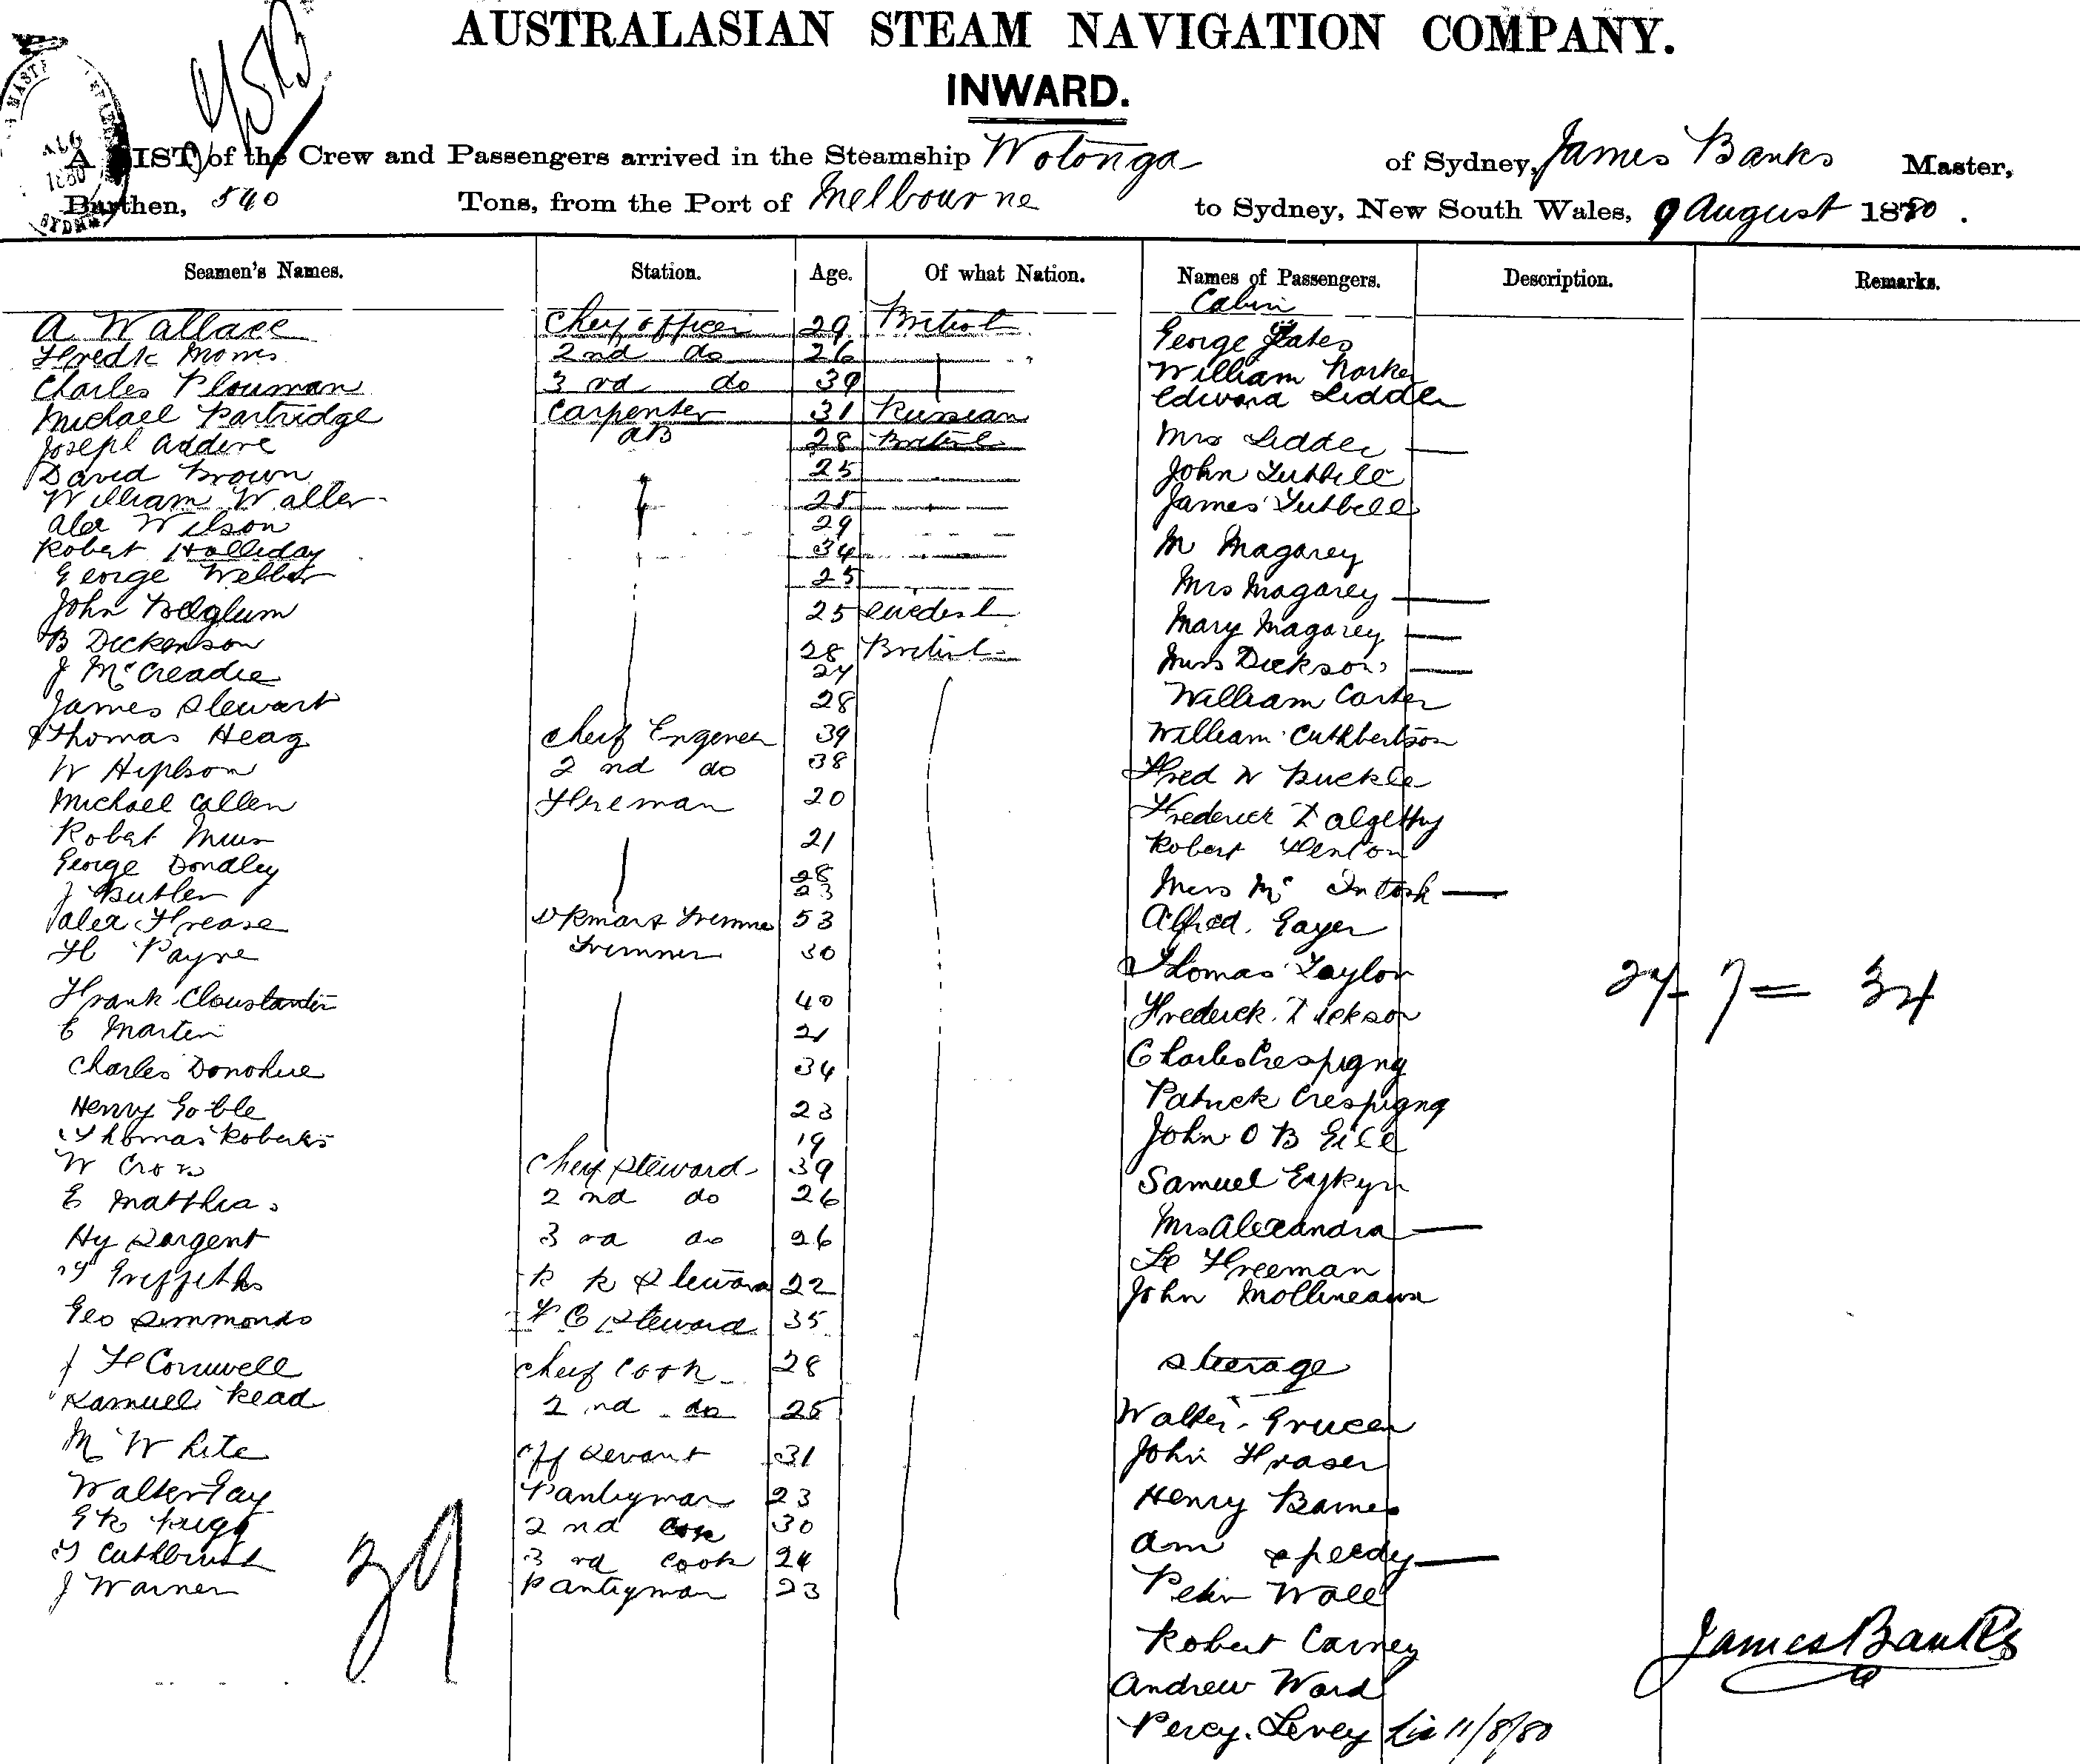 AUSTRALASIAN STEAM NAVIGATION COMPANY.
INWARD.
A LIST of the Crew and Passengers arrived in the Steamship Wotonga of Sydney, James Banks Master,
Burthen, 540 Tons, from the Port of Melbourne to Sydney, New South Wales, 9 August 1880.
Seamen's Names. Station. Age. Of what Nation. Names of Passengers. Description. Remarks.
Cabin
A Wallace Cheif officer 29 British George Yates
Fredk Morris 2nd do 26 William Parker
Charles Plouman 3rd do 39 Edward Lidder
Michael Partridge Carpenter 31 Russian
Joseph Addine AB 28 British Mrs Lidder
David Brown 25 John Tuthill
William Waller 25 James Tuthell
Alex Wilson 29
Robert Holliday 34 M Magarey
George Webber 25 Mrs Magarey
John 25 Swedish Mary Magarey
B Dickenson 28 British Miss Dickson
J McCreadie 24
James Stewart 28 William Carter
Thomas Heag Cheif Engineer 39 William Cuthbertson
W Hipson 2nd do 38 Fred W Buckle
Michael Callen Fireman 20 Frederick Dalgetty
Robert Muir 21 Robert Henton
George Dondley 28
J Butler 23 Miss Mc Intosh
Alex Frease Dkman & Trimmer 53 Alfred Gayer
H Payne Trimmer 30 Thomas Taylor
Frank 40 Frederick Dickson 27 - 7 = 34
E Martin 21
Charles Donohue 34 Charles Crespigny
Henry Goble 23 Patrick Crespigny
Thomas Roberts 19 John O B Gill
W Cross Cheif Steward 39
E Matthias 2nd do 26 Samuel Eykyn
Hy Sargent 3rd do 26 Mrs Alexandra
T Griffiths Steward 22 Freeman
Geo Simmonds F C Steward 35 John Mollineaux
J H Cornwell Cheif Cook 28 Steerage
Samuel Read 2nd do 25 Walter
M White off Servant 31 John Fraser
Walter Gay Pantryman 23 Henry Barnes
2nd Cook 30 Am Speedy
T Cuthbrush 3rd Cook 24
J Warner Pantryman 23 Peter Wall
39
Robert Carney James Banks
Andrew Ward
Percy Levey 11/8/80